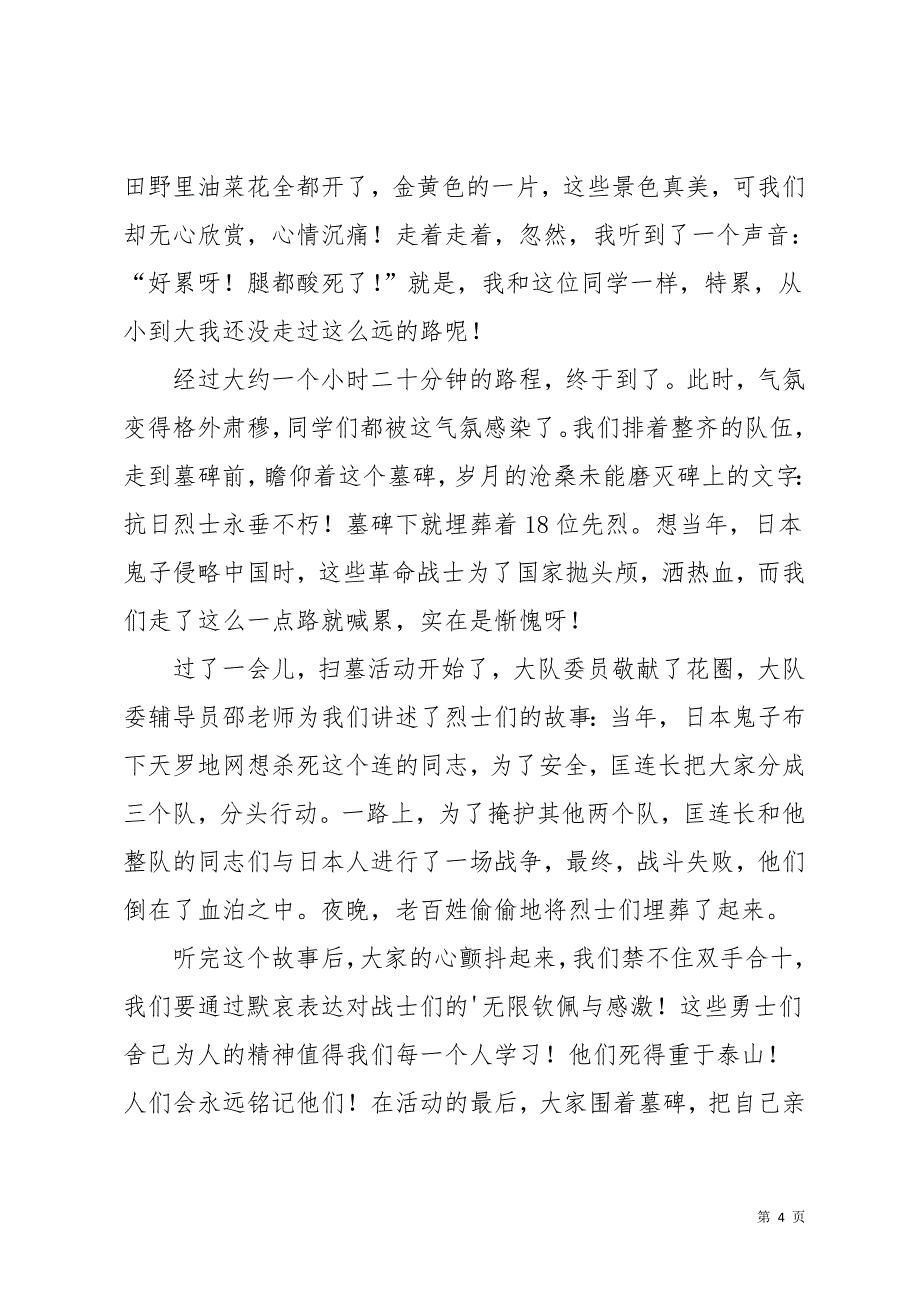 田野里油菜花全都开了，金黄色的一片，这些景色真美，可我们
却无心欣赏，心情沉痛！走着走着，忽然，我听到了一个声音：
“好累呀！腿都酸死了！”就是，我和这位同学一样，特累，从
小到大我还没走过这么远的路呢！
经过大约一个小时二十分钟的路程，终于到了。此时，气氛
变得格外肃穆，同学们都被这气氛感染了。我们排着整齐的队伍，
走到墓碑前，瞻仰着这个墓碑，岁月的沧桑未能磨灭碑上的文字：
抗日烈士永垂不朽！墓碑下就埋葬着18位先烈。想当年，日本
鬼子侵略中国时，这些革命战士为了国家抛头颅，洒热血，而我
们走了这么一点路就喊累，实在是惭愧呀！
过了一会儿，扫墓活动开始了，大队委员敬献了花圈，大队
委辅导员邵老师为我们讲述了烈士们的故事：当年，日本鬼子布
下天罗地网想杀死这个连的同志，为了安全，匡连长把大家分成
三个队，分头行动。一路上，为了掩护其他两个队，匡连长和他
整队的同志们与日本人进行了一场战争，最终，战斗失败，他们
倒在了血泊之中。夜晚，老百姓偷偷地将烈士们埋葬了起来。
听完这个故事后，大家的心颤抖起来，我们禁不住双手合十，
我们要通过默哀表达对战士们的'无限钦佩与感激！这些勇士们
舍己为人的精神值得我们每一个人学习！他们死得重于泰山！
人们会永远铭记他们！在活动的最后，大家围着墓碑，把自己亲
第 4 页